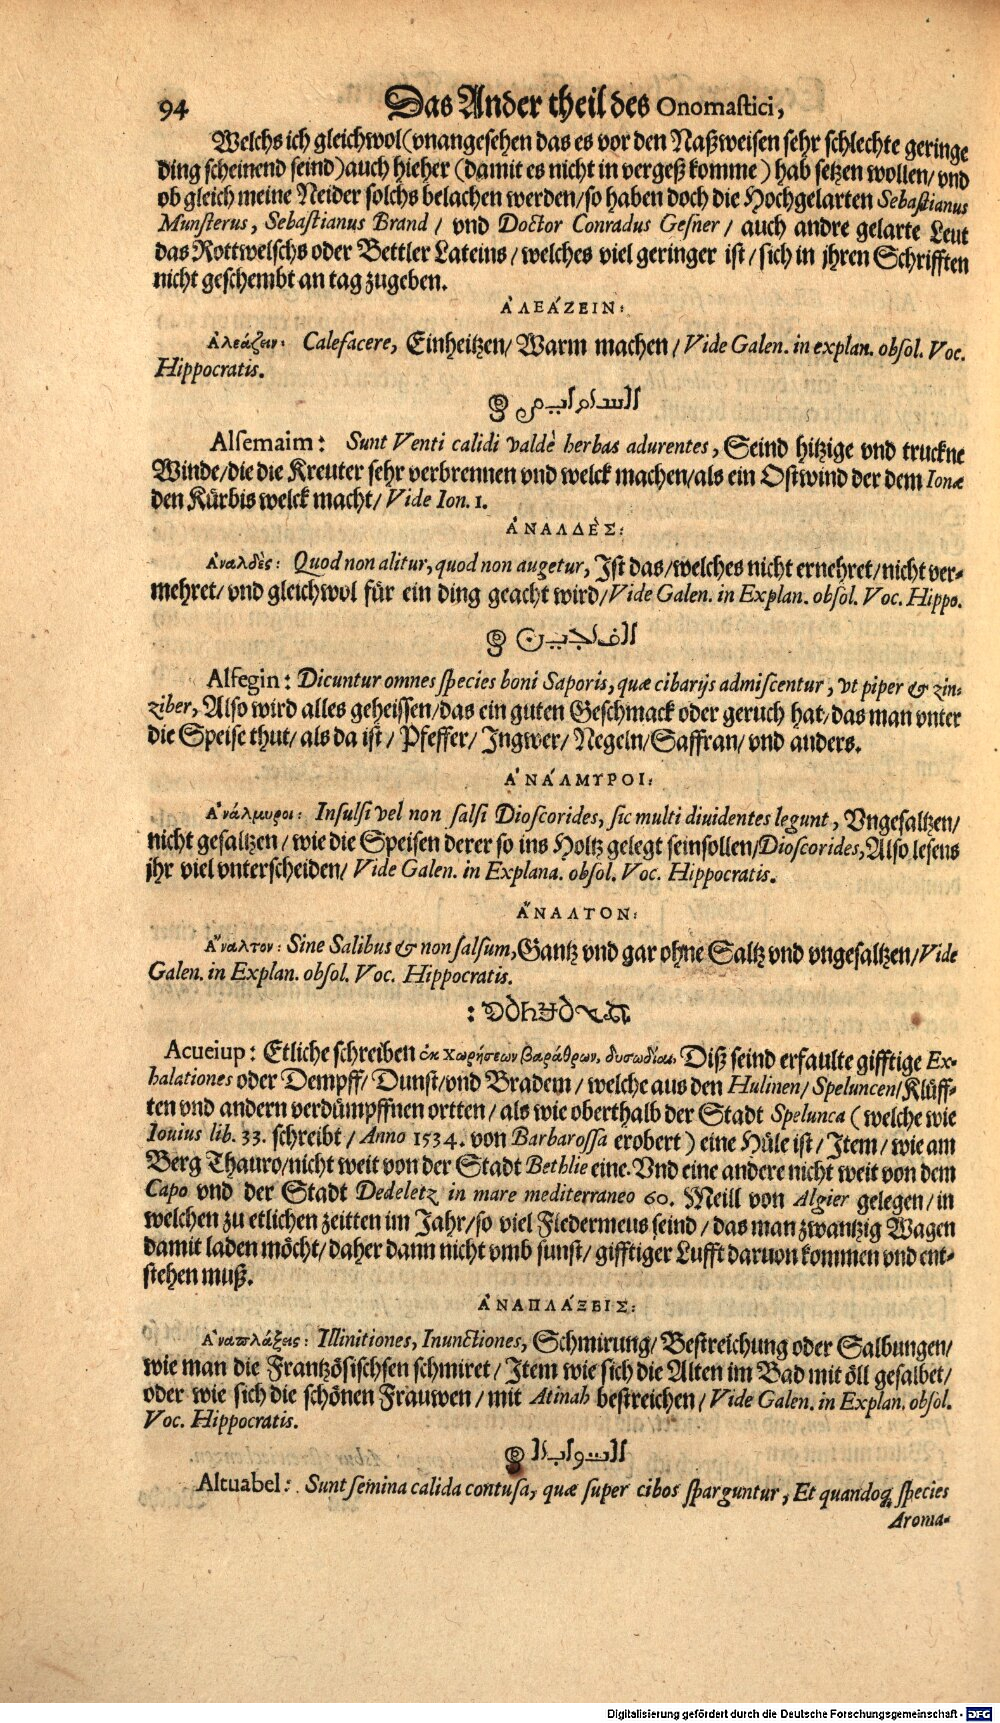 94 Das Ander theil des Onomastici,
Welchs ich gleichwol (vnangesehen das es vor den Naßweisen sehr schlechte geringe
ding scheinend seind) auch hieher (damit es nicht in vergeß komme) hab setzen wollen / vnd
ob gleich meine Neider solchs belachen werden / so haben doch die Hochgelarten Sebastianus
Munsterus, Sebastianus Brand / vnd Doctor Conradus Gesner / auch andre gelarte Leut
das Rottwelschs oder Bettler Lateins / welches viel geringer ist / sich in jhren Schrifften
nicht geschembt an tag zugeben.
ἈΛΕΆΖΕΙΝ:
Ἀλεάζειν: Calefacere, Einheitzen / Warm machen / Vide Galen. in explan. obsol. Voc.
Hippocratis.
السمايم
Alsemaim: Sunt Venti calidi valdè herbas adurentes, Seind hitzige vnd truckne
Winde / die die Kreuter sehr verbrennen vnd welck machen / als ein Ostwind der dem Ionæ
den Kürbis welck macht / Vide Ion. 1.
ἈΝΑΛΔΈΣ:
Ἀναλδὲς: Quod non alitur, quod non augetur, Ist das / welches nicht ernehret / nicht ver-
mehret / vnd gleichwol für ein ding geacht wird / Vide Galen. in Explan. obsol. Voc. Hippo.
Alfegin: Dicuntur omnes species boni Saporis, quæ cibarijs admiscentur, vt piper & zin-
ziber, Also wird alles geheissen / das ein guten Geschmack oder geruch hat / das man vnter
die Speise thut / als da ist / Pfeffer / Ingwer / Negeln / Saffran / vnd anders.
ἈΝΆΛΜΥΡΟΙ:
Ἀνάλμυροι: Insulsi vel non salsi Dioscorides, sic multi diuidentes legunt, Vngesaltzen /
nicht gesaltzen / wie die Speisen derer so ins Holtz gelegt sein sollen / Dioscorides, Also lesens
jhr viel vnterscheiden / Vide Galen. in Explana. obsol. Voc. Hippocratis.
ἌΝΑΛΤΟΝ:
Ἄναλτον: Sine Salibus & non salsum, Gantz vnd gar ohne Saltz vnd vngesaltzen / Vide
Galen. in Explan. obsol. Voc. Hippocratis.
Acueiup: Etliche schreiben ἐκ χωρήσεων βαράθρων, δυσωδίαι, Diß seind erfaulte gifftige Ex-
halationes oder Dempff / Dunst / vnd Bradem / welche aus den Hulinen / Speluncen / Klüff-
ten vnd andern verdümpffnen ortten / als wie oberthalb der Stadt Spelunca (welche wie
Iouius lib. 33. schreibt / Anno 1534. von Barbarossa erobert) eine Hüle ist / Item / wie am
Berg Thauro / nicht weit von der Stadt Bethlie eine. Vnd eine andere nicht weit von dem
Capo vnd der Stadt Dedeletz in mare mediterraneo 60. Meill von Algier gelegen / in
welchen zu etlichen zeitten im Jahr / so viel Fledermeus seind / das man zwantzig Wagen
damit laden möcht / daher dann nicht vmb sunst / gifftiger Lufft daruon kommen vnd ent-
stehen muß.
ἈΝΑΠΛΆΞΕΙΣ:
Ἀναπλάξεις: Illinitiones, Inunctiones, Schmirung / Bestreichung oder Salbungen /
wie man die Frantzösischsen schmiret / Item wie sich die Alten im Bad mit öll gesalbet /
oder wie sich die schönen Frauwen / mit Atinah bestreichen / Vide Galen. in Explan. obsol.
Voc. Hippocratis.
التوابل
Altuabel: Sunt semina calida contusa, quæ super cibos sparguntur, Et quandoq; species
Aroma-
Digitalisierung gefördert durch die Deutsche Forschungsgemeinschaft - DFG